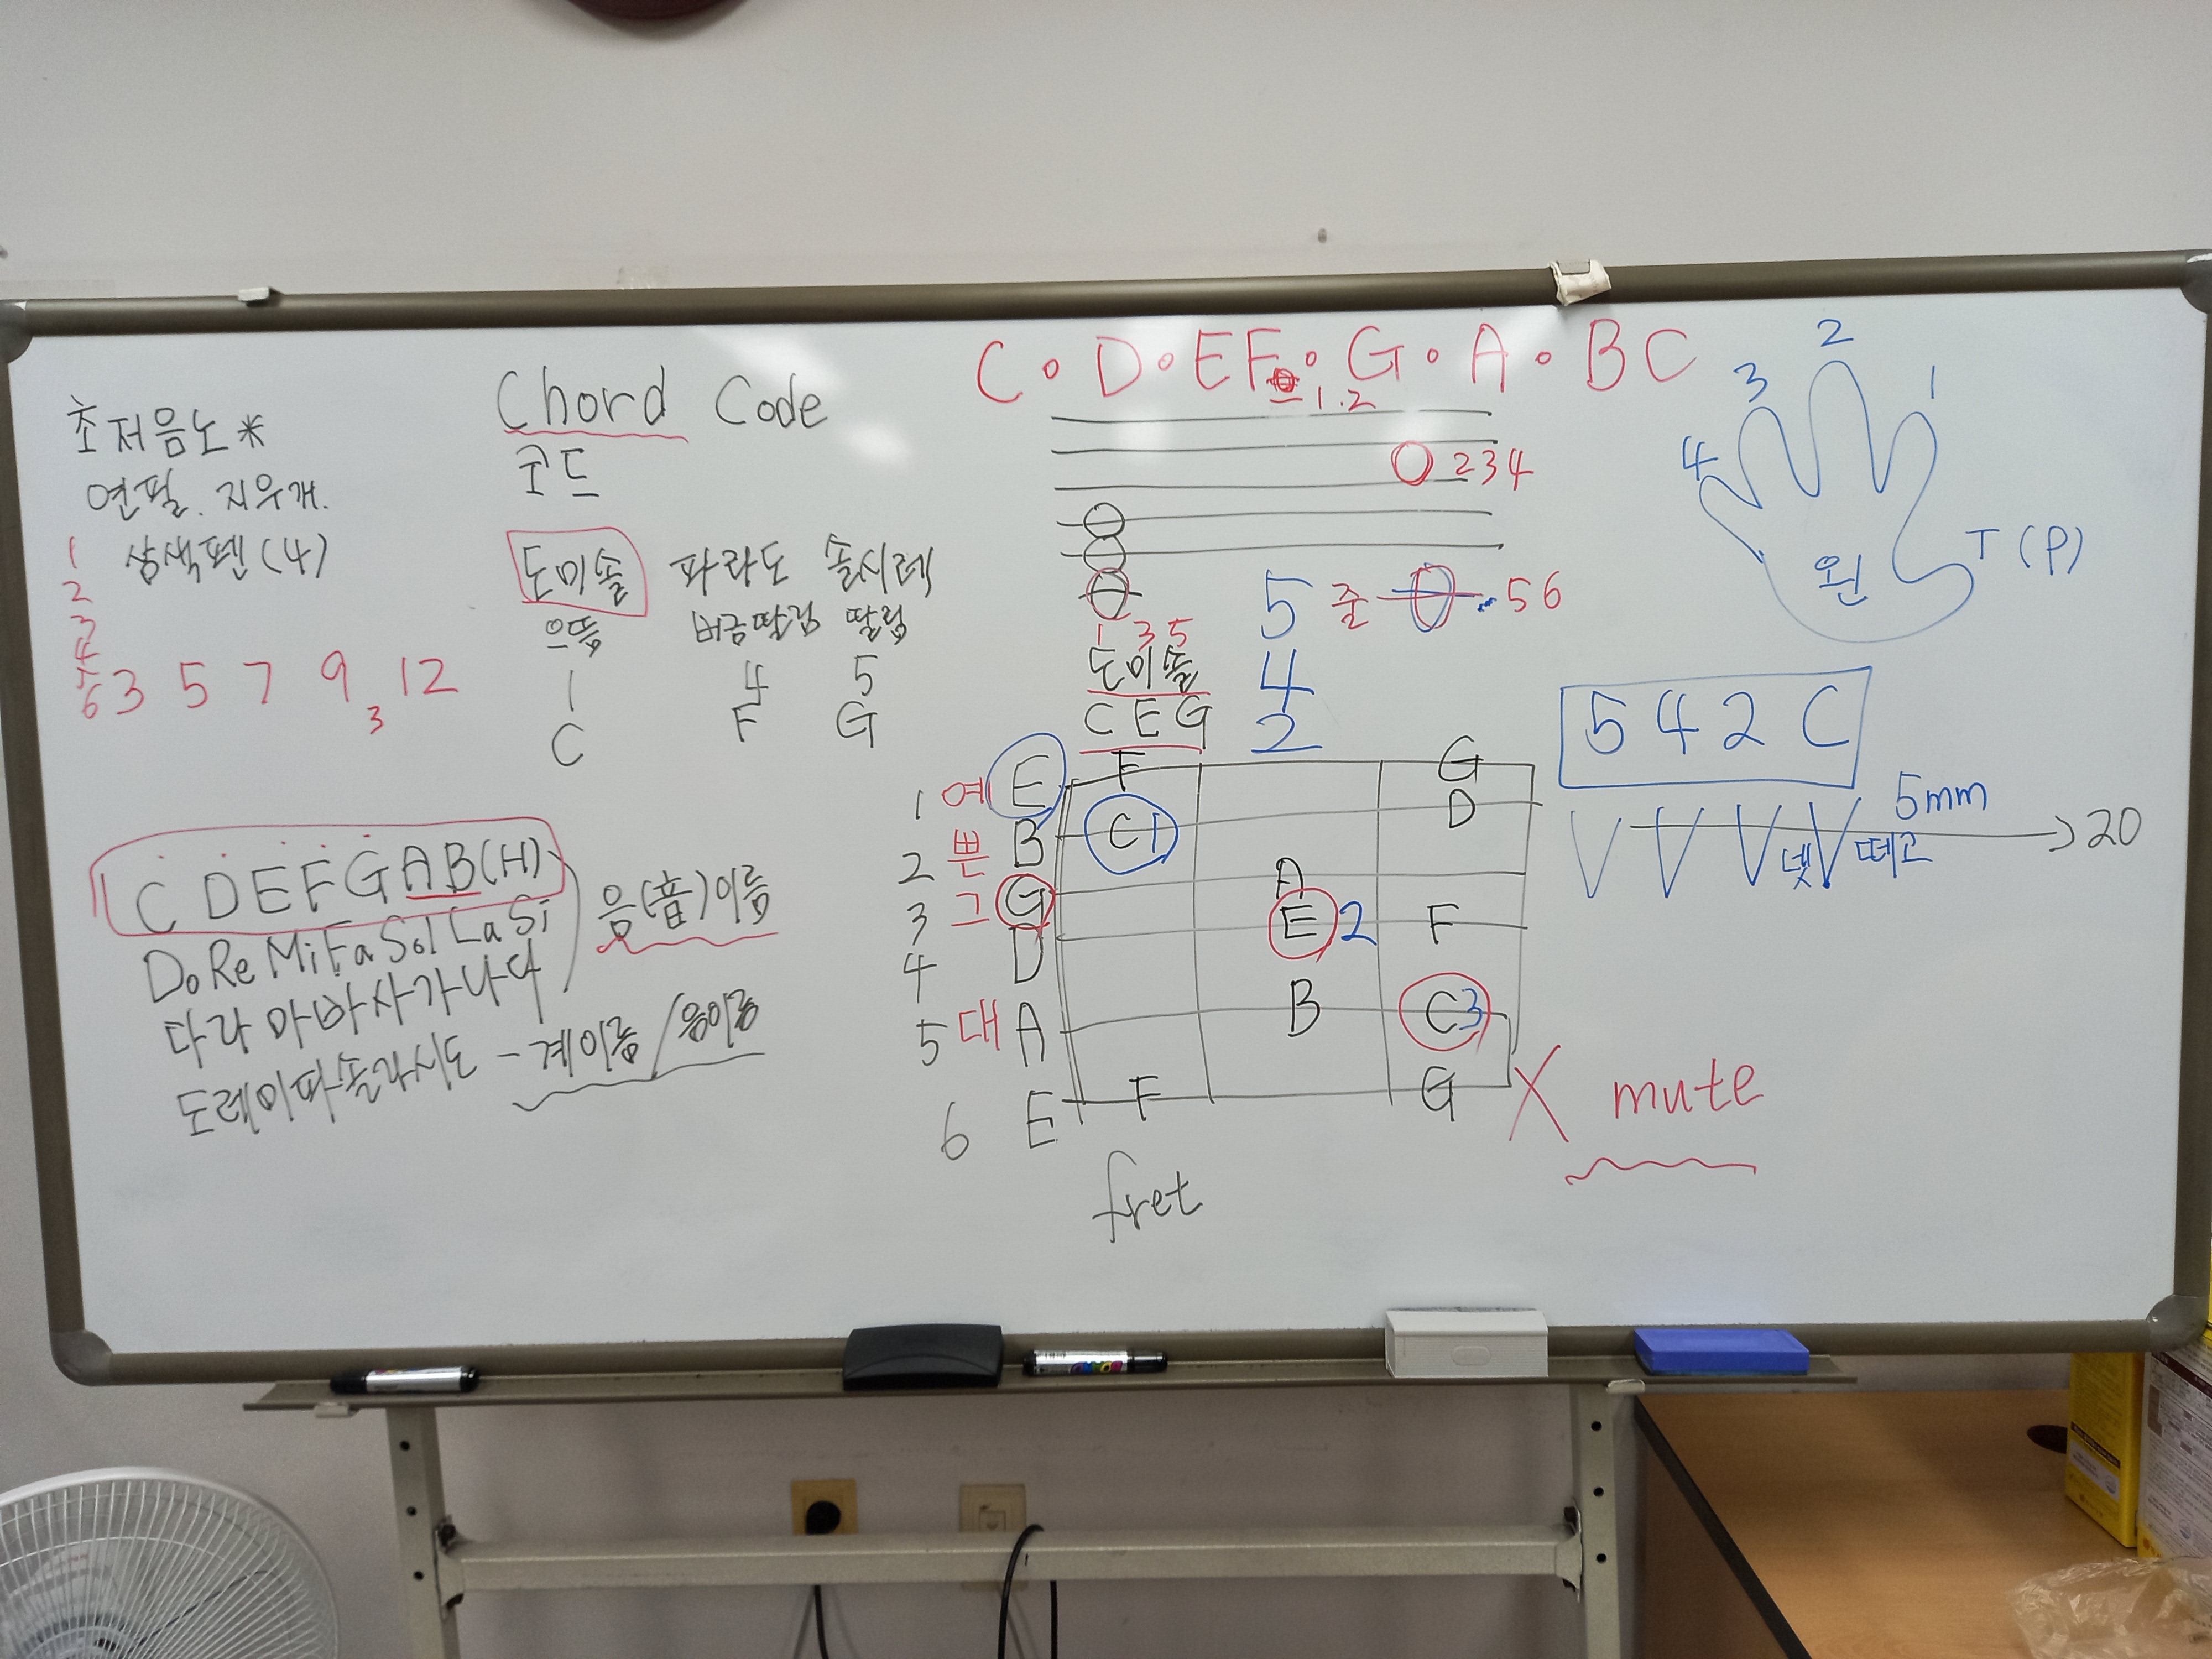 C · D · EF · G · A · BC
1.2
초저음노*
연필. 지우개.
삼색펜(4)
1
2
3
4
5
6
3 5 7 9 3 12
Chord Code
코드
도미솔 파라도 솔시레
으뜸 버금딸림 딸림
1 4 5
C F G
234
5 줄 56
4
2
1 3 5
도미솔
C E G
2
3
1
4
T (P)
왼
5 4 2 C
5mm
넷 떼고
20
C D E F G A B (H)
Do Re Mi Fa Sol La Si
음(音)이름
다라마바사가나다
도레미파솔라시도 - 계이름/음이름
1 예 E F G
2 쁜 B C1 D
3 그 G A
4 D E 2 F
5 대 A B C3
6 E F G
X mute
fret